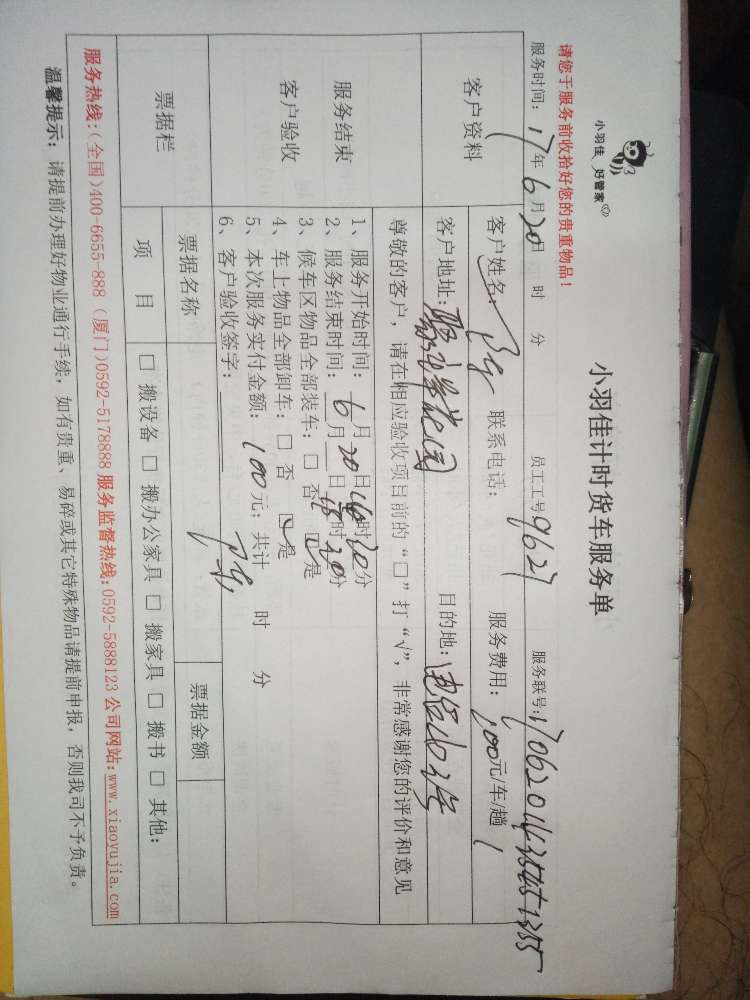 小羽佳 好管家
小羽佳计时货车服务单
请您于服务前收拾好您的贵重物品！
服务时间：17年6月20日 时 分 员工工号9627 服务联号：
客户资料
客户姓名： 联系电话： 服务费用：100元/车/趟
客户地址： 目的地：
尊敬的客户，请在相应验收项目前的“□”打“√”，非常感谢您的评价和意见
服务结束
客户验收
1、服务开始时间：6月20日 时20分
2、服务结束时间：6月20日 时20分
3、候车区物品全部装车：□ 否 ☑是
4、车上物品全部卸车：□ 否 ☑是
5、本次服务实付金额：100元；共计 时 分
6、客户验收签字：
票据栏
票据名称 票据金额
项 目 □ 搬设备 □ 搬办公家具 □ 搬家具 □ 搬书 □ 其他：
服务热线：(全国)400-6655-888 (厦门)0592-5178888 服务监督热线：0592-5888123 公司网站：www.xiaoyujia.com
温馨提示：请提前办理好物业通行手续，如有贵重、易碎或其它特殊物品请提前申报，否则我司不予负责。